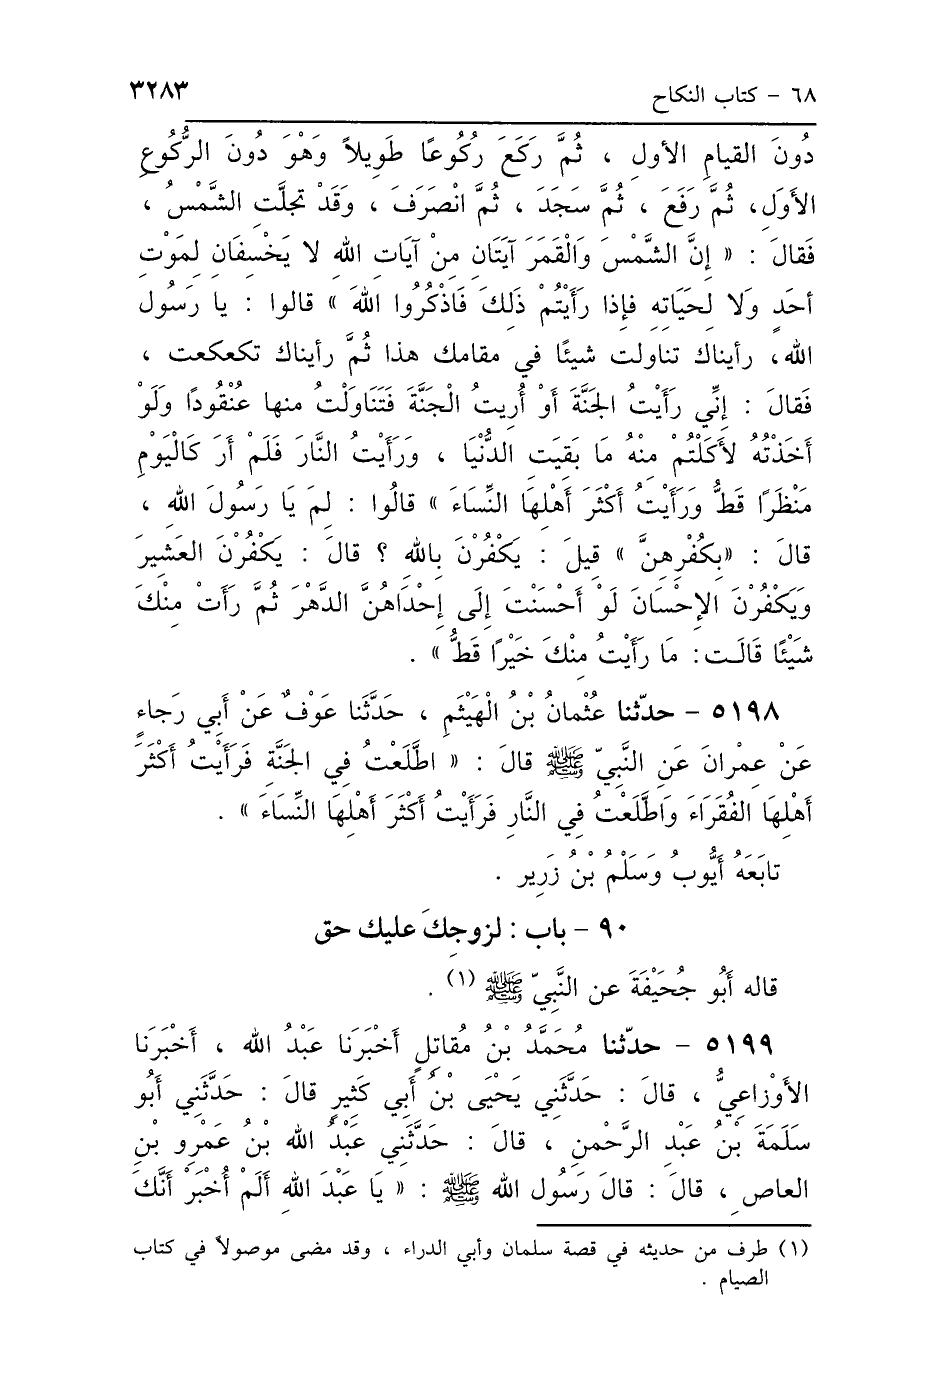 ٦٨ - كتاب النكاح ٣٢٨٣
دُونَ القيامِ الأولِ ، ثُمَّ رَكَعَ رُكُوعًا طَوِيلاً وَهْوَ دُونَ الرُّكُوعِ
الأَوَلِ، ثُمَّ رَفَعَ ، ثُمَّ سَجَدَ ، ثُمَّ انْصَرَفَ ، وَقَدْ تجلَّت الشَّمْسُ ،
فَقالَ : « إنَّ الشَّمْسَ وَالْقَمَرَ آيَتَانِ مِنْ آيَاتِ اللهِ لا يَخْسِفَانِ لِمَوْتِ
أحَدٍ وَلا لِحَيَاتِهِ فإذا رَأَيْتُمْ ذَلِكَ فَاذْكُرُوا اللهَ » قالوا : يا رَسُولَ
اللهِ، رأيناك تناولت شيئًا في مقامك هذا ثُمَّ رأيناك تكعكعت ،
فَقالَ : إنِّي رَأَيْتُ الجَنَّةَ أَوْ أُرِيتُ الْجَنَّةَ فَتَنَاوَلْتُ منها عُنْقُودًا وَلَوْ
أخَذْتُهُ لأَكَلْتُمْ مِنْهُ مَا بَقِيَتِ الدُّنْيَا ، وَرَأَيْتُ النَّارَ فَلَمْ أَرَ كَالْيَوْمِ
مَنْظَرًا قَطُّ وَرَأَيْتُ أَكْثَرَ أَهْلِهَا النِّسَاءَ » قالُوا : لِمَ يَا رَسُولَ اللهِ ،
قالَ : «بِكُفْرِهِنَّ » قِيلَ : يَكْفُرْنَ بِاللهِ ؟ قالَ : يَكْفُرْنَ العَشِيرَ
وَيَكْفُرْنَ الإحْسَانَ لَوْ أَحْسَنْتَ إِلَى إحْدَاهُنَّ الدَّهْرَ ثُمَّ رَأَتْ مِنْكَ
شَيْئًا قَالَت: مَا رَأَيْتُ مِنْكَ خَيْرًا قَطُّ » .
٥١٩٨ - حدّثنا عُثْمانُ بْنُ الْهَيْثَمِ ، حَدَّثَنا عَوْفٌ عَنْ أَبِي رَجاءٍ
عَنْ عِمْرانَ عَنِ النَّبِيّ ﷺ قالَ : « اطَّلَعْتُ فِي الجَنَّةِ فَرَأَيْتُ أَكْثَرَ
أهْلِهَا الفُقَرَاءَ وَاطَّلَعْتُ فِي النَّارِ فَرَأَيْتُ أَكْثَرَ أَهْلِهَا النِّسَاءَ » .
تابَعَهُ أَيُّوبُ وَسَلْمُ بْنُ زَرِيرٍ .
٩٠ - باب : لزوجِكَ عليك حق
قاله أَبُو جُحَيْفَةَ عن النَّبِيّ ﷺ (١) .
٥١٩٩ - حدّثنا مُحَمَّدُ بْنُ مُقاتِلٍ أَخْبَرَنَا عَبْدُ اللهِ ، أَخْبَرَنَا
الأَوْزاعِيُّ ، قالَ : حَدَّثَنِي يَحْيَى بْنُ أَبِي كَثِيرٍ قالَ : حَدَّثَنِي أَبُو
سَلَمَةَ بْنُ عَبْدِ الرَّحْمنِ ، قالَ : حَدَّثَنِي عَبْدُ اللهِ بْنُ عَمْرِو بْنِ
العاصِ ، قالَ : قالَ رَسُولُ اللهِ ﷺ : « يَا عَبْدَ اللهِ أَلَمْ أُخْبَرْ أَنَّكَ
(١) طرف من حديثه في قصة سلمان وأبي الدراء ، وقد مضى موصولاً في كتاب
الصيام .